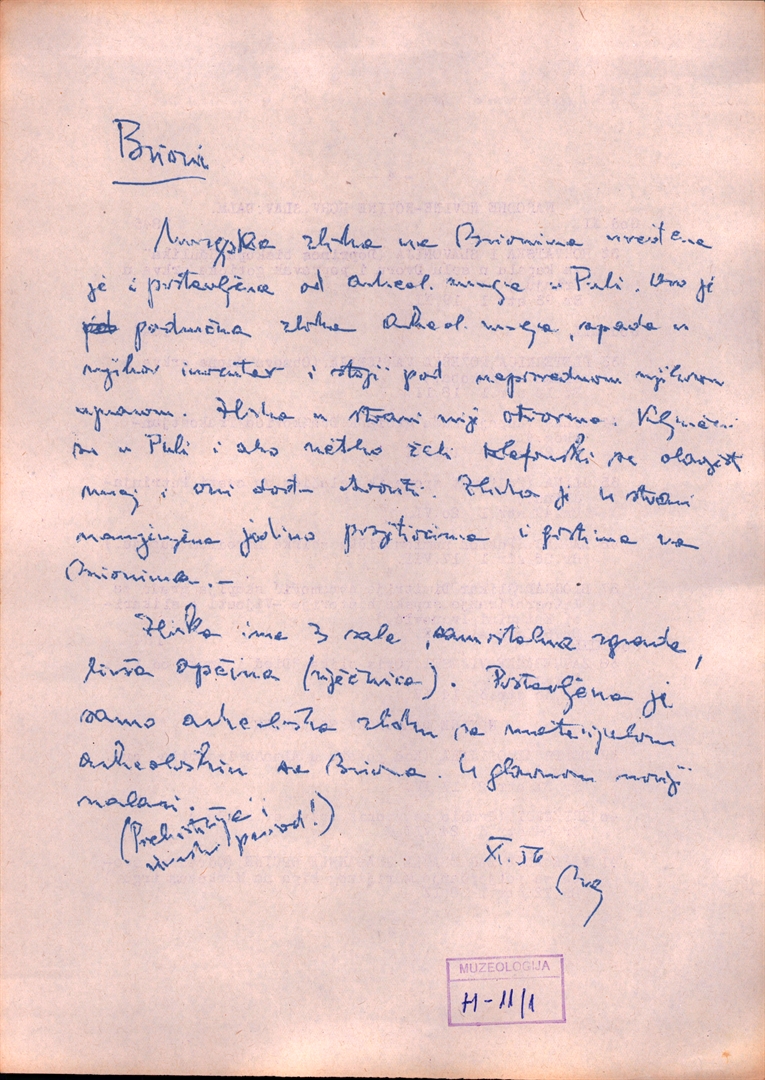 Brioni
Muzejska zbirka na Brionima uređena
je i postavljena od Arheol. muzeja u Puli. Ovo je
područna zbirka Arheol. muzeja, spada u
njihov inventar i stoji pod neposrednom njihovom
upravom. Zbirka u stvari nije otvorena. Ključevi
su u Puli i ako netko želi telefonski se obavijesti
muzej i oni dođu otvoriti. Zbirka je u stvari
namijenjena jedino posjetiocima i gostima na
Brionima. –
Zbirka ima 3 sale, samostalna zgrada,
bivša općina (vijećnica). Postavljena je
samo arheološka zbirka sa materijalom
arheološkim sa Briona. U glavnom noviji
nalazi.
(Prehistorija i
rimski period!)
XI. 56
MUZEOLOGIJA
H-11/1